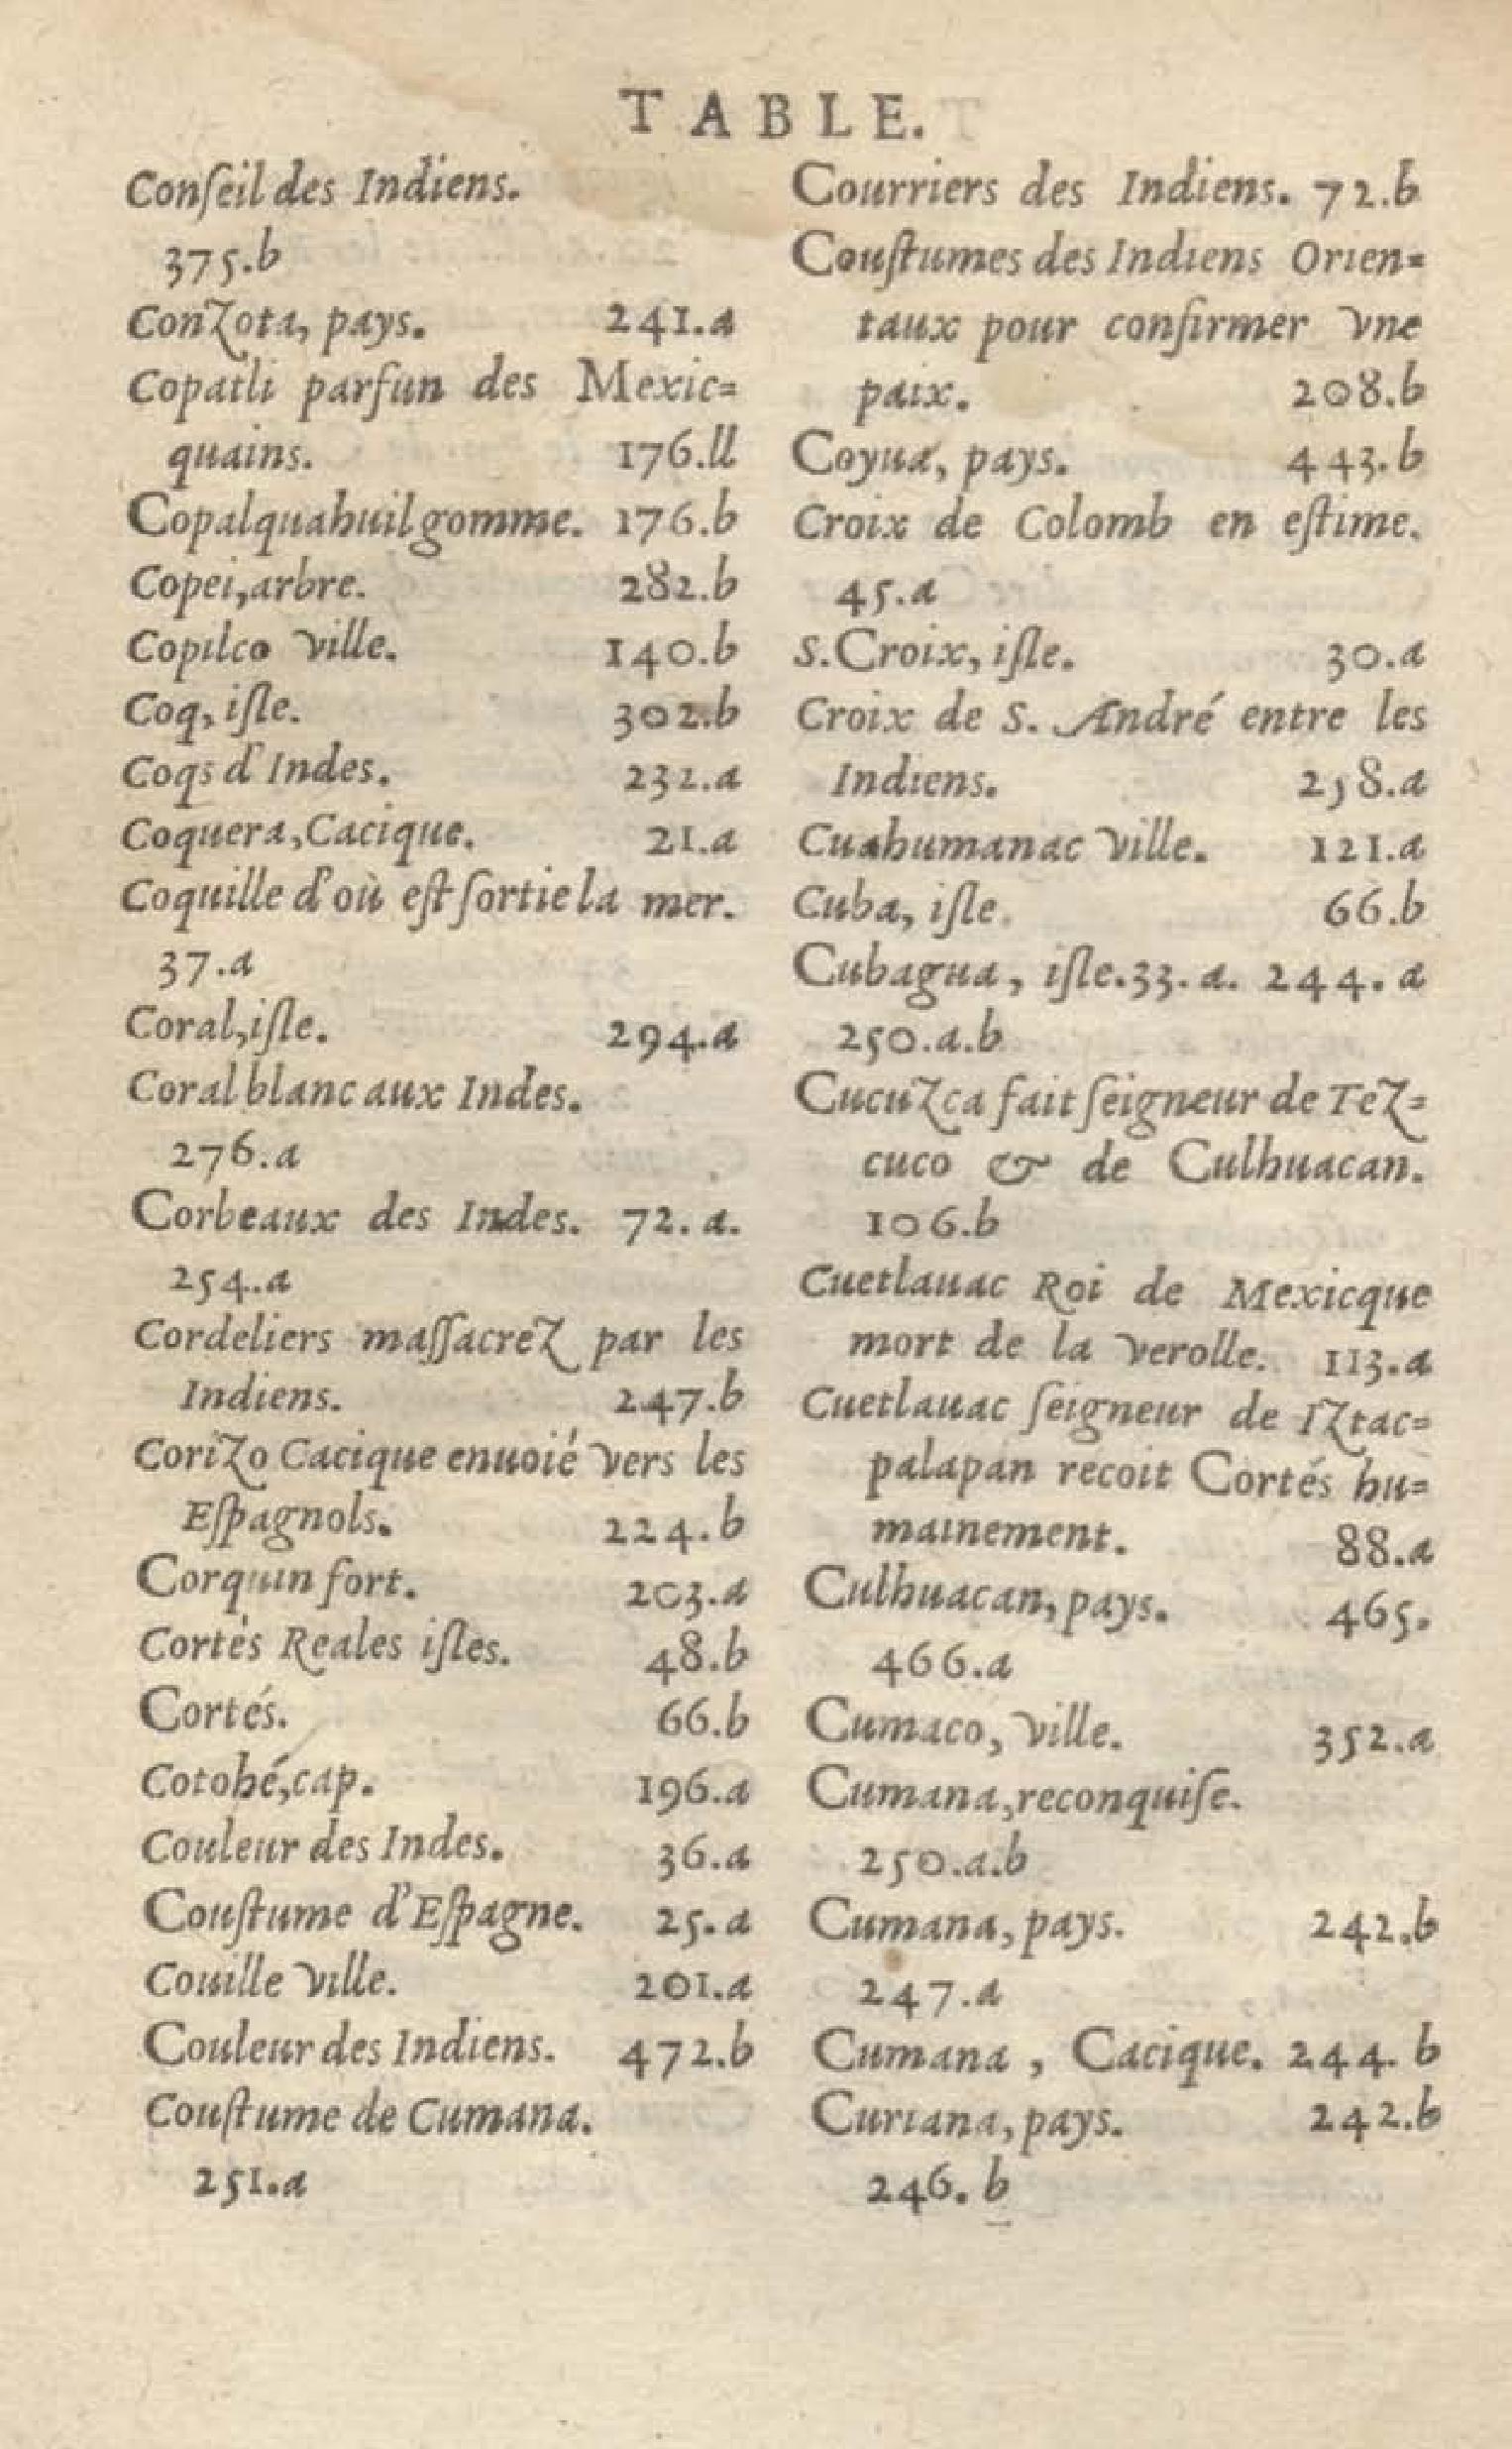 TABLE.
Conſeil des Indiens.
375.b
Conzota, pays. 241.a
Copatli parfun des Mexic=
quains. 176.ll
Copalquahuil gomme. 176.b
Copei, arbre. 282.b
Copilco ville. 140.b
Coq, iſle. 302.b
Coqs d'Indes. 232.a
Coquera, Cacique. 21.a
Coquille d'où eſt ſortie la mer.
37.a
Coral, iſle. 294.a
Coral blanc aux Indes.
276.a
Corbeaux des Indes. 72.a.
254.a
Cordeliers maſſacrez par les
Indiens. 247.b
Corizo Cacique enuoié vers les
Eſpagnols. 224.b
Corquin fort. 203.a
Cortés Reales iſles. 48.b
Cortés. 66.b
Cotohé, cap. 196.a
Couleur des Indes. 36.a
Couſtume d'Eſpagne. 25.a
Couille ville. 201.a
Couleur des Indiens. 472.b
Couſtume de Cumana.
251.a
Courriers des Indiens. 72.b
Couſtumes des Indiens Orien=
taux pour confirmer vne
paix. 208.b
Coyua, pays. 443.b
Croix de Colomb en eſtime.
45.a
S. Croix, iſle. 30.a
Croix de S. André entre les
Indiens. 258.a
Cuahumanac ville. 121.a
Cuba, iſle. 66.b
Cubagua, iſle. 33.a. 244.a
250.a.b
Cucuzca fait ſeigneur de Tez=
cuco & de Culhuacan.
106.b
Cuetlauac Roi de Mexicque
mort de la verolle. 113.a
Cuetlauac ſeigneur de Iztac=
palapan recoit Cortés hu=
mainement. 88.a
Culhuacan, pays. 465.
466.a
Cumaco, ville. 352.a
Cumana, reconquiſe.
250.a.b
Cumana, pays. 242.b
247.a
Cumana, Cacique. 244.b
Curiana, pays. 242.b
246.b